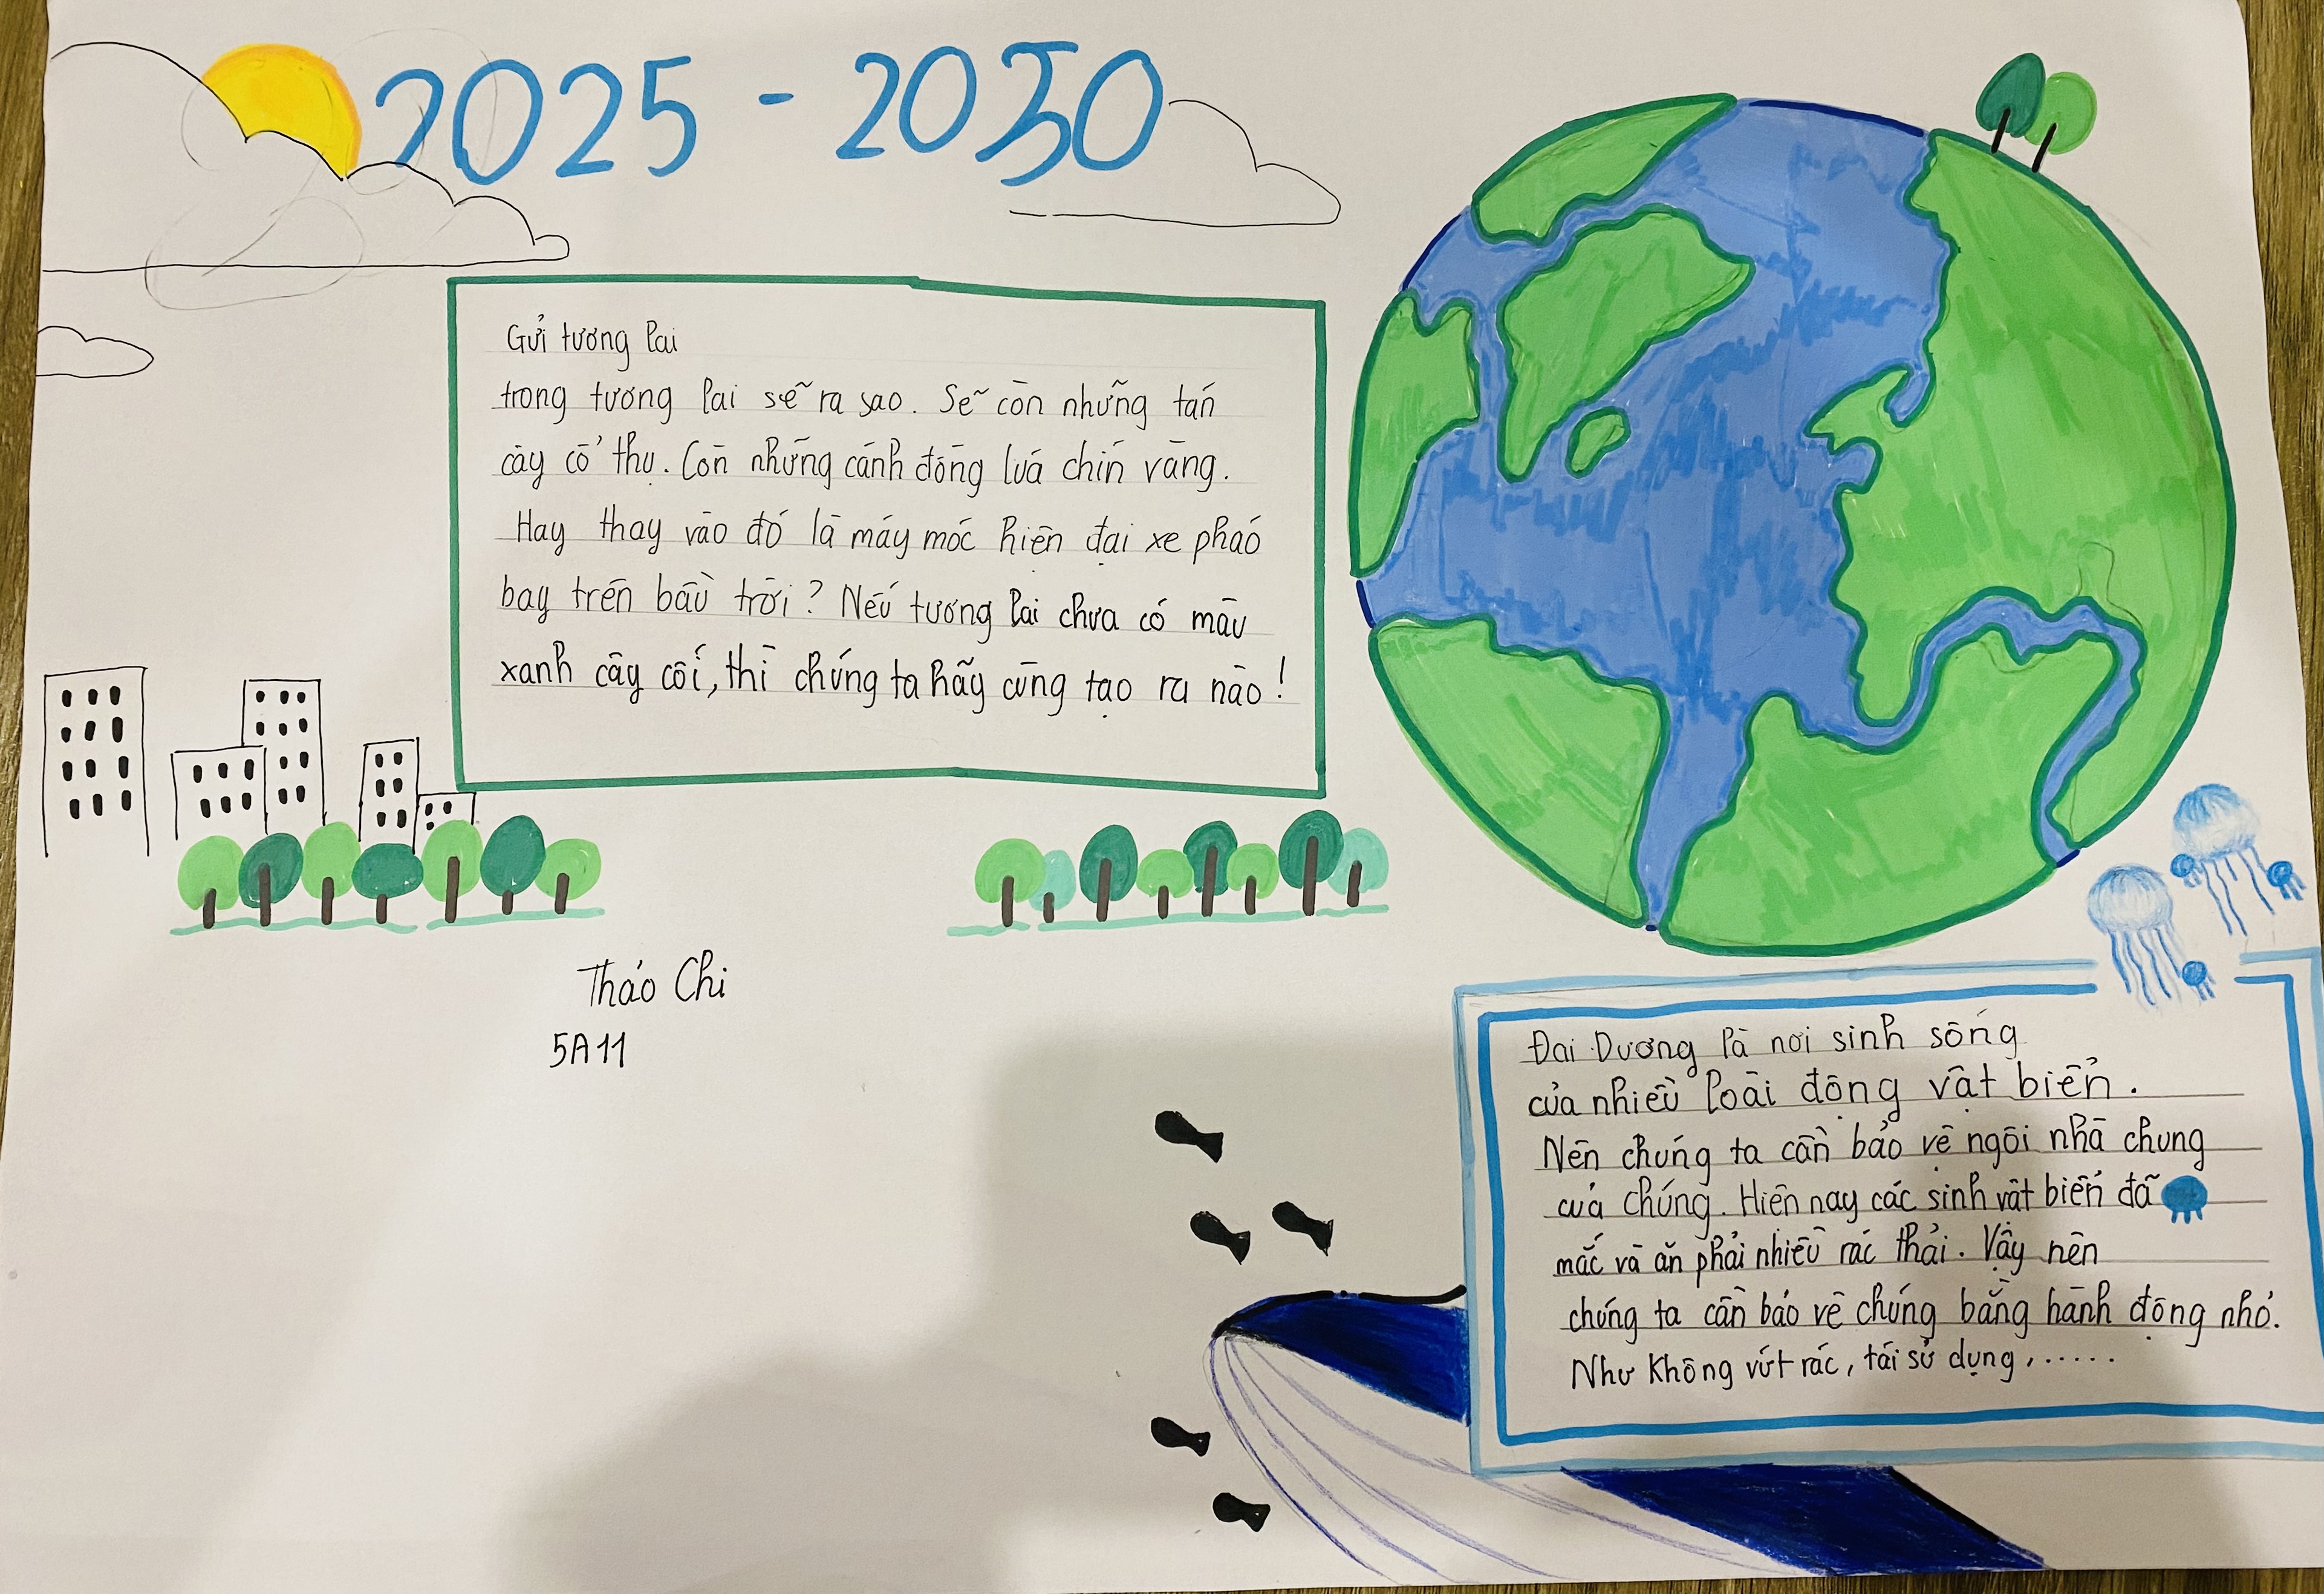 2025 - 2030
Gửi tương lai
trong tương lai sẽ ra sao. Sẽ còn những tán
cây cổ thụ. Còn những cánh đồng lúa chín vàng.
Hay thay vào đó là máy móc hiện đại xe pháo
bay trên bầu trời? Nếu tương lai chưa có màu
xanh cây cối, thì chúng ta hãy cùng tạo ra nào!
Thảo Chi
5A11
Đại Dương là nơi sinh sống
của nhiều loài động vật biển.
Nên chúng ta cần bảo vệ ngôi nhà chung
của chúng. Hiện nay các sinh vật biển đã
mắc và ăn phải nhiều rác thải. Vậy nên
chúng ta cần bảo vệ chúng bằng hành động nhỏ.
Như không vứt rác, tái sử dụng,......